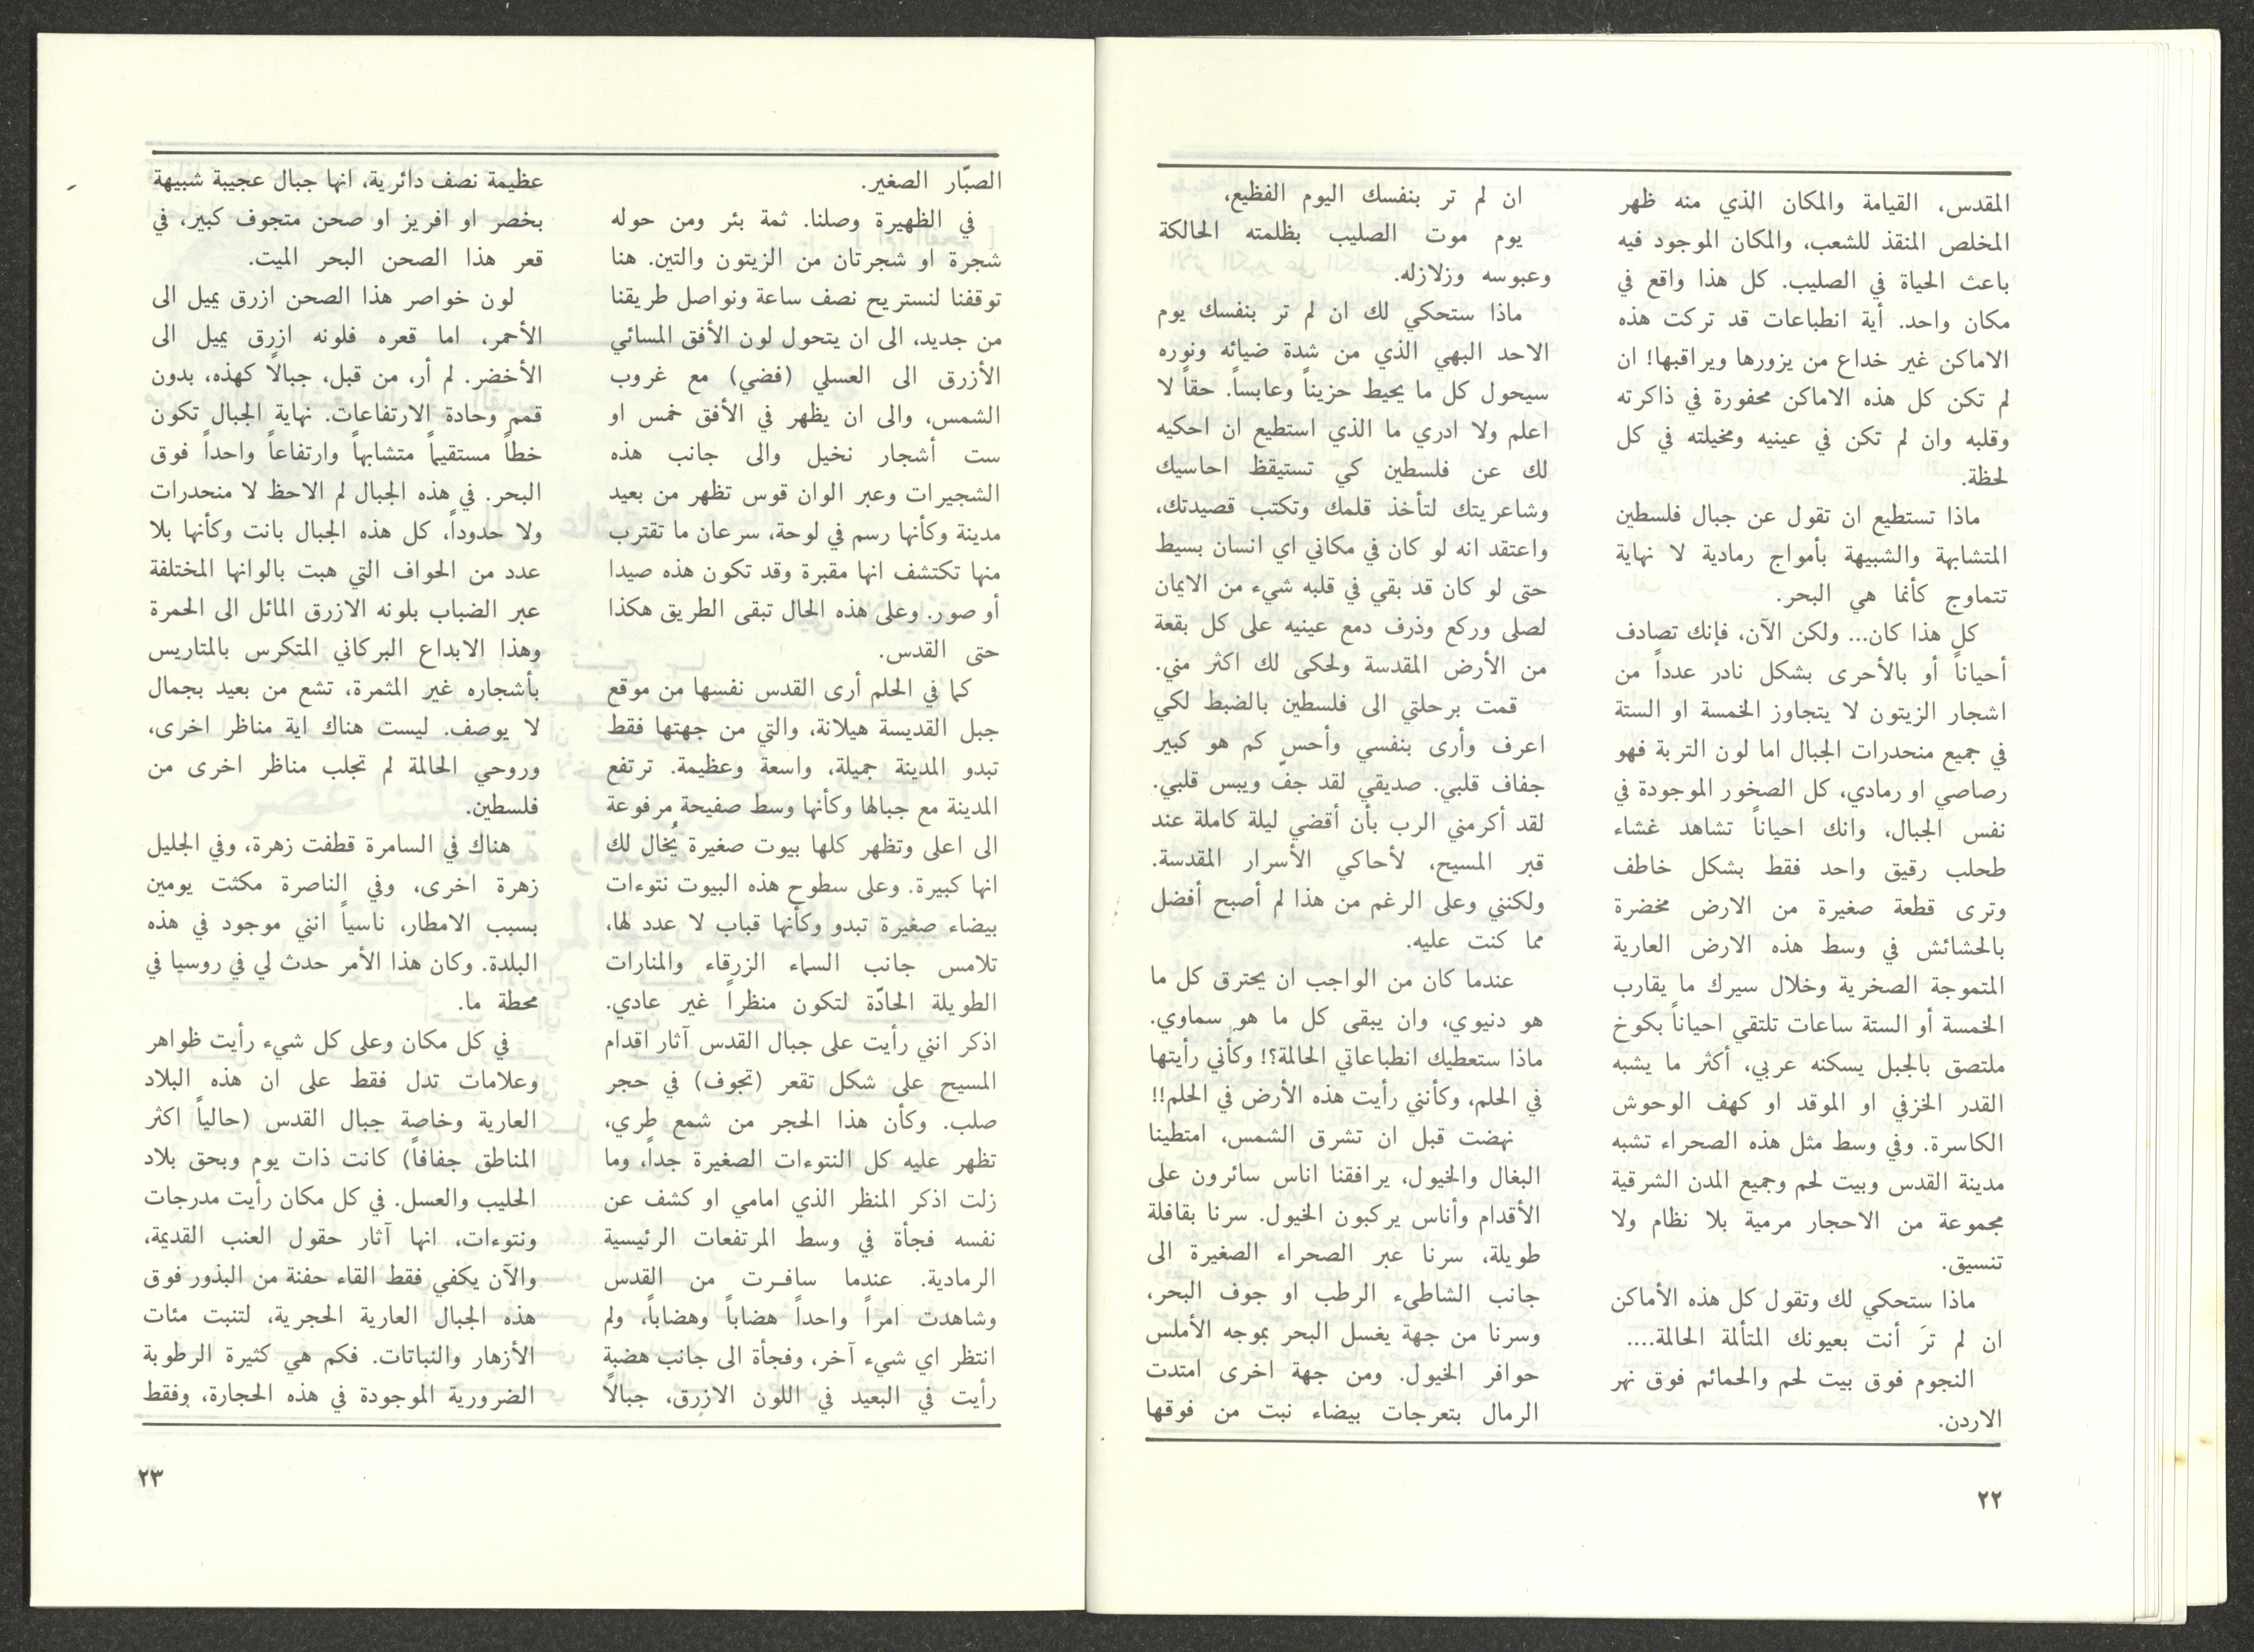 المقدس، القيامة والمكان الذي منه ظهر
المخلص المنقذ للشعب، والمكان الموجود فيه
باعث الحياة في الصليب. كل هذا واقع في
مكان واحد. أية انطباعات قد تركت هذه
الاماكن غير خداع من يزورها ويراقبها! ان
لم تكن كل هذه الاماكن محفورة في ذاكرته
وقلبه وان لم تكن في عينيه ومخيلته في كل
لحظة.
ماذا تستطيع ان تقول عن جبال فلسطين
المتشابهة والشبيهة بأمواج رمادية لا نهاية
تتماوج كأنما هي البحر.
كل هذا كان... ولكن الآن، فإنك تصادف
أحياناً أو بالأحرى بشكل نادر عدداً من
اشجار الزيتون لا يتجاوز الخمسة او الستة
في جميع منحدرات الجبال اما لون التربة فهو
رصاصي او رمادي، كل الصخور الموجودة في
نفس الجبال، وانك احياناً تشاهد غشاء
طحلب رقيق واحد فقط بشكل خاطف
وترى قطعة صغيرة من الارض مخضرة
بالحشائش في وسط هذه الارض العارية
المتموجة الصخرية وخلال سيرك ما يقارب
الخمسة أو الستة ساعات تلتقي احياناً بكوخ
ملتصق بالجبل يسكنه عربي، أكثر ما يشبه
القدر الخزفي او الموقد او كهف الوحوش
الكاسرة. وفي وسط مثل هذه الصحراء تشبه
مدينة القدس وبيت لحم وجميع المدن الشرقية
مجموعة من الاحجار مرمية بلا نظام ولا
تنسيق.
ماذا ستحكي لك وتقول كل هذه الأماكن
ان لم ترَ أنت بعيونك المتألمة الحالمة....
النجوم فوق بيت لحم والحمائم فوق نهر
الاردن.
ان لم تر بنفسك اليوم الفظيع،
يوم موت الصليب بظلمته الحالكة
وعبوسه وزلازله.
ماذا ستحكي لك ان لم تر بنفسك يوم
الاحد البهي الذي من شدة ضيائه ونوره
سيحول كل ما يحيط حزيناً وعابساً. حقاً لا
اعلم ولا ادري ما الذي استطيع ان احكيه
لك عن فلسطين كي تستيقظ احاسيك
وشاعريتك لتأخذ قلمك وتكتب قصيدتك،
واعتقد انه لو كان في مكاني اي انسان بسيط
حتى لو كان قد بقي في قلبه شيء من الايمان
لصلى وركع وذرف دمع عينيه على كل بقعة
من الأرض المقدسة ولحكى لك اكثر مني.
قمت برحلتي الى فلسطين بالضبط لكي
اعرف وأرى بنفسي وأحس كم هو كبير
جفاف قلبي. صديقي لقد جفّ ويبس قلبي.
لقد أكرمني الرب بأن أقضي ليلة كاملة عند
قبر المسيح، لأحاكي الأسرار المقدسة.
ولكنني وعلى الرغم من هذا لم أصبح أفضل
مما كنت عليه.
عندما كان من الواجب ان يحترق كل ما
هو دنيوي، وان يبقى كل ما هو سماوي.
ماذا ستعطيك انطباعاتي الحالمة؟! وكأني رأيتها
في الحلم، وكأنني رأيت هذه الأرض في الحلم!!
نهضت قبل ان تشرق الشمس، امتطينا
البغال والخيول، يرافقنا اناس سائرون على
الأقدام وأناس يركبون الخيول. سرنا بقافلة
طويلة، سرنا عبر الصحراء الصغيرة الى
جانب الشاطىء الرطب او جوف البحر،
وسرنا من جهة يغسل البحر بموجه الأملس
حوافر الخيول. ومن جهة اخرى امتدت
الرمال بتعرجات بيضاء نبت من فوقها
٢٢
الصبّار الصغير.
في الظهيرة وصلنا. ثمة بئر ومن حوله
شجرة او شجرتان من الزيتون والتين. هنا
توقفنا لنستريح نصف ساعة ونواصل طريقنا
من جديد، الى ان يتحول لون الأفق المسائي
الأزرق الى العسلي (فضي) مع غروب
الشمس، والى ان يظهر في الأفق خمس او
ست أشجار نخيل والى جانب هذه
الشجيرات وعبر الوان قوس تظهر من بعيد
مدينة وكأنها رسم في لوحة، سرعان ما تقترب
منها تكتشف انها مقبرة وقد تكون هذه صيدا
أو صور. وعلى هذه الحال تبقى الطريق هكذا
حتى القدس.
كما في الحلم أرى القدس نفسها من موقع
جبل القديسة هيلانة، والتي من جهتها فقط
تبدو المدينة جميلة، واسعة وعظيمة. ترتفع
المدينة مع جبالها وكأنها وسط صفيحة مرفوعة
الى اعلى وتظهر كلها بيوت صغيرة يُخال لك
انها كبيرة. وعلى سطوح هذه البيوت نتوءات
بيضاء صغيرة تبدو وكأنها قباب لا عدد لها،
تلامس جانب السماء الزرقاء والمنارات
الطويلة الحادّة لتكون منظراً غير عادي.
اذكر انني رأيت على جبال القدس آثار اقدام
المسيح على شكل تقعر (تجوف) في حجر
صلب. وكأن هذا الحجر من شمع طري،
تظهر عليه كل النتوءات الصغيرة جداً، وما
زلت اذكر المنظر الذي امامي او كشف عن
نفسه فجأة في وسط المرتفعات الرئيسية
الرمادية. عندما سافرت من القدس
وشاهدت امراً واحداً هضاباً وهضاباً، ولم
انتظر اي شيء آخر، وفجأة الى جانب هضبة
رأيت في البعيد في اللون الازرق، جبالًا
عظيمة نصف دائرية، انها جبال عجيبة شبيهة
بخصر او افريز او صحن متجوف كبير، في
قعر هذا الصحن البحر الميت.
لون خواصر هذا الصحن ازرق يميل الى
الأحمر، اما قعره فلونه ازرق يميل الى
الأخضر. لم أر، من قبل، جبالًا كهذه، بدون
قمم وحادة الارتفاعات. نهاية الجبال تكون
خطاً مستقيماً متشابهاً وارتفاعاً واحداً فوق
البحر. في هذه الجبال لم الاحظ لا منحدرات
ولا حدوداً، كل هذه الجبال بانت وكأنها بلا
عدد من الحواف التي هبت بالوانها المختلفة
عبر الضباب بلونه الازرق المائل الى الحمرة
وهذا الابداع البركاني المتكرس بالمتاريس
بأشجاره غير المثمرة، تشع من بعيد بجمال
لا يوصف. ليست هناك اية مناظر اخرى،
وروحي الحالمة لم تجلب مناظر اخرى من
فلسطين.
هناك في السامرة قطفت زهرة، وفي الجليل
زهرة اخرى، وفي الناصرة مكثت يومين
بسبب الامطار، ناسياً انني موجود في هذه
البلدة. وكان هذا الأمر حدث لي في روسيا في
محطة ما.
في كل مكان وعلى كل شيء رأيت ظواهر
وعلامات تدل فقط على ان هذه البلاد
العارية وخاصة جبال القدس (حالياً اكثر
المناطق جفافاً) كانت ذات يوم وبحق بلاد
الحليب والعسل. في كل مكان رأيت مدرجات
ونتوءات، انها آثار حقول العنب القديمة،
والآن يكفي فقط القاء حفنة من البذور فوق
هذه الجبال العارية الحجرية، لتنبت مئات
الأزهار والنباتات. فكم هي كثيرة الرطوبة
الضرورية الموجودة في هذه الحجارة، وفقط
٢٣